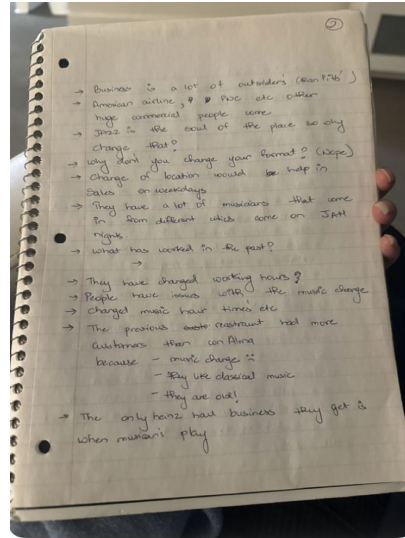 2
→ Business is a lot of outsiders (Non Pitts')
→ American airline, PNC etc other
huge commercial people come
→ Jazz is the soul of the place so why
change that?
→ why don't you change your format? (Nope)
→ Change of location would help in
Sales on weekdays
→ They have a lot of musicians that come
in from different cities come on JAM
nights
→ What has worked in the past?
→
→ They have changed working hours?
→ People have issues with the music change
→ Changed music hour times etc
→ The previous reastraunt had more
customers than con Alma
because - music change
- They like classical music
- they are old!
→ The only heinz hall business they get is
when musician's play